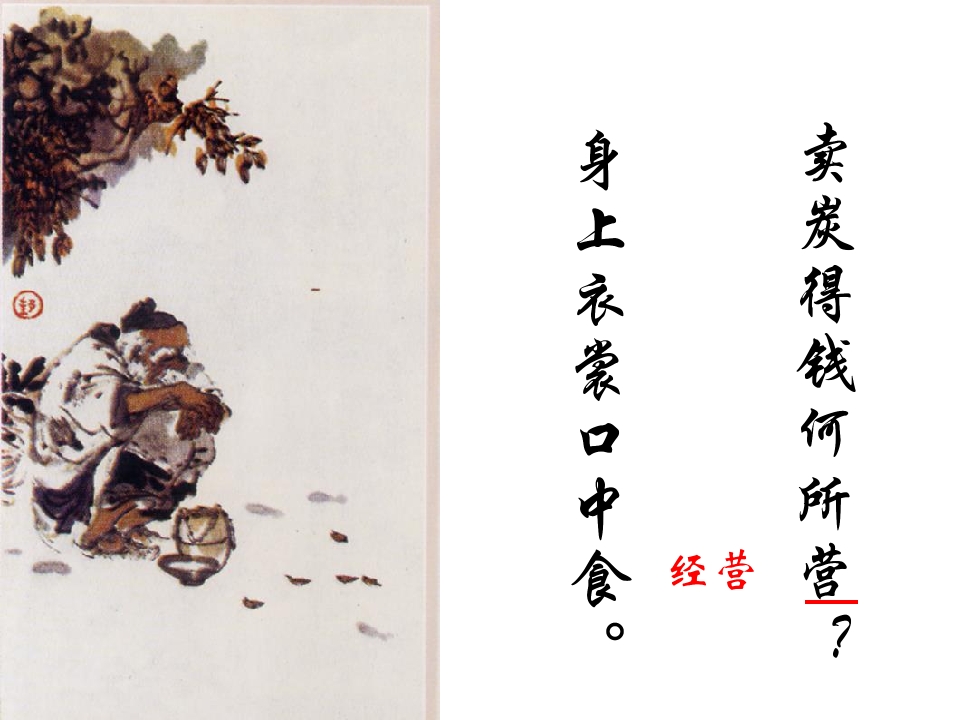 卖炭得钱何所营？
经营
身上衣裳口中食。